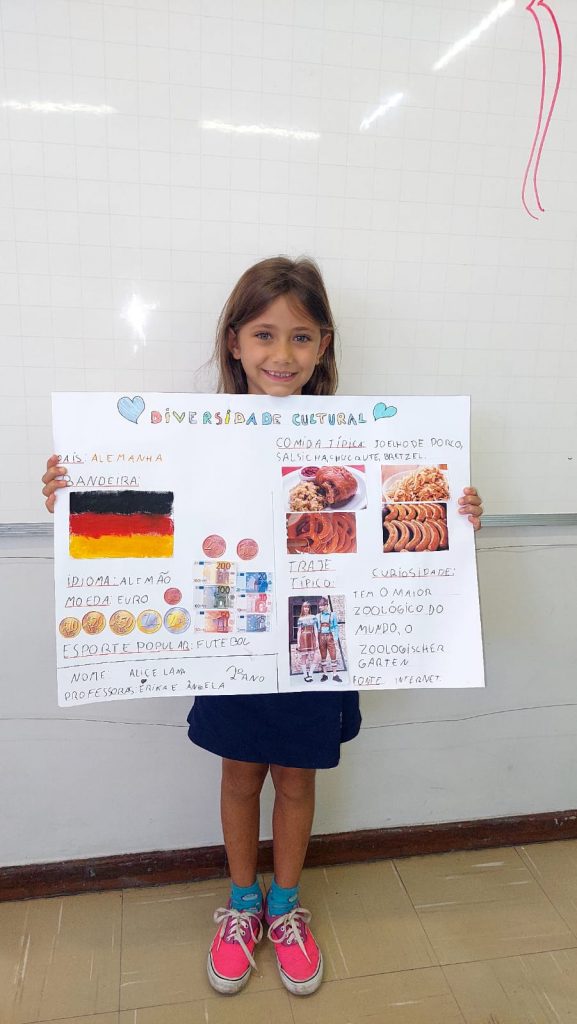 DIVERSIDADE CULTURAL
PAÍS: ALEMANHA
BANDEIRA:
IDIOMA: ALEMÃO
MOEDA: EURO
ESPORTE POPULAR: FUTEBOL
NOME ALICE LANA 2º ANO
PROFESSORAS: ÉRIKA E ÂNGELA
COMIDA TÍPICA: JOELHO DE PORCO,
SALSICHA, CHUCRUTE, BRETZEL.
TRAJE
TÍPICO:
CURIOSIDADE:
TEM O MAIOR
ZOOLÓGICO DO
MUNDO, O
ZOOLOGISCHER
GARTEN
FONTE: INTERNET